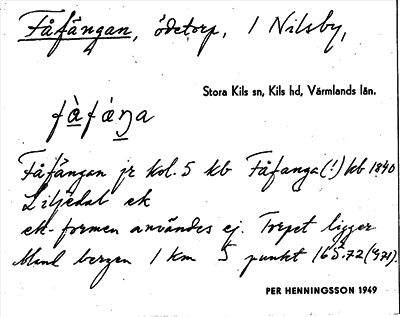 Fåfängan, ödetorp, i Nilsby,
Stora Kils sn, Kils hd, Värmlands län.
fà̱fáŋ̱a
Fåfängan jr kol. 5 kb Fåfanga(!) kb 1840
Liljedal ek
ek-formen användes ej. Torpet ligger
bland bergen 1 km S punkt 165.72 (
PER HENNINGSSON 1949